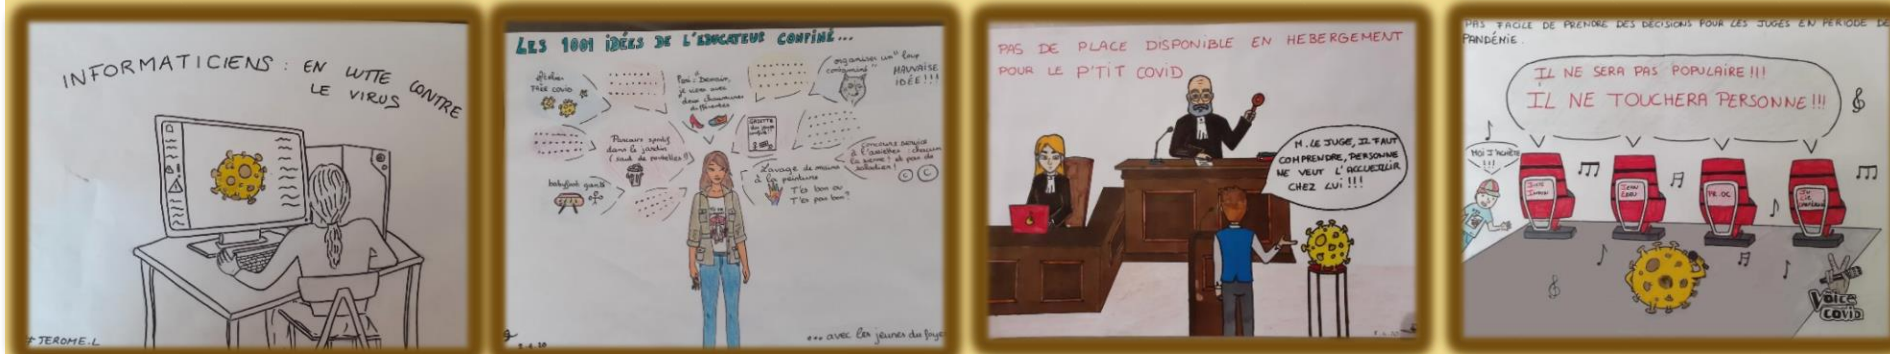 INFORMATICIENS : EN LUTTE CONTRE
LE VIRUS
JEROME.L
LES 1001 IDÉES DE L'EDUCATEUR CONFINÉ...
FREE COVID
Demain,
je viens avec
deux chaussures
différentes
organiser un "loup
contaminé"
MAUVAISE
IDÉE!!!
Parcours sportif
dans le jardin
(saut de poubelles!!)
Concours service
à l'assiettes : chacun
la sienne! et pas de
Lavage de mains
à la peinture
T'es bon ou
T'es pas bon?
babyfoot géant
... avec les jeunes du foye
PAS DE PLACE DISPONIBLE EN HEBERGEMENT
POUR LE P'TIT COVID
M. LE JUGE, IL FAUT
COMPRENDRE, PERSONNE
NE VEUT L'ACCUEILLIR
CHEZ LUI !!!
PAS FACILE DE PRENDRE DES DECISIONS POUR LES JUGES EN PERIODE DE
PANDÉMIE.
IL NE SERA PAS POPULAIRE !!!
IL NE TOUCHERA PERSONNE !!!
MOI J'ACHÈTE
!!!
PR. OC
Voice
COVID